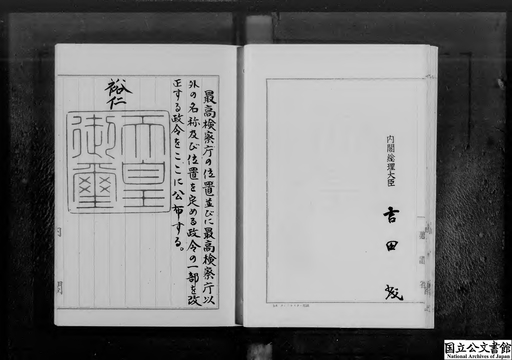 最高検察庁の位置並びに最高検察庁以
外の名称及び位置を定める政令の一部を改
正する政令をここに公布する。
裕仁
天皇
御璽
内閣総理大臣
吉田茂
国立公文書館
National Archives of Japan